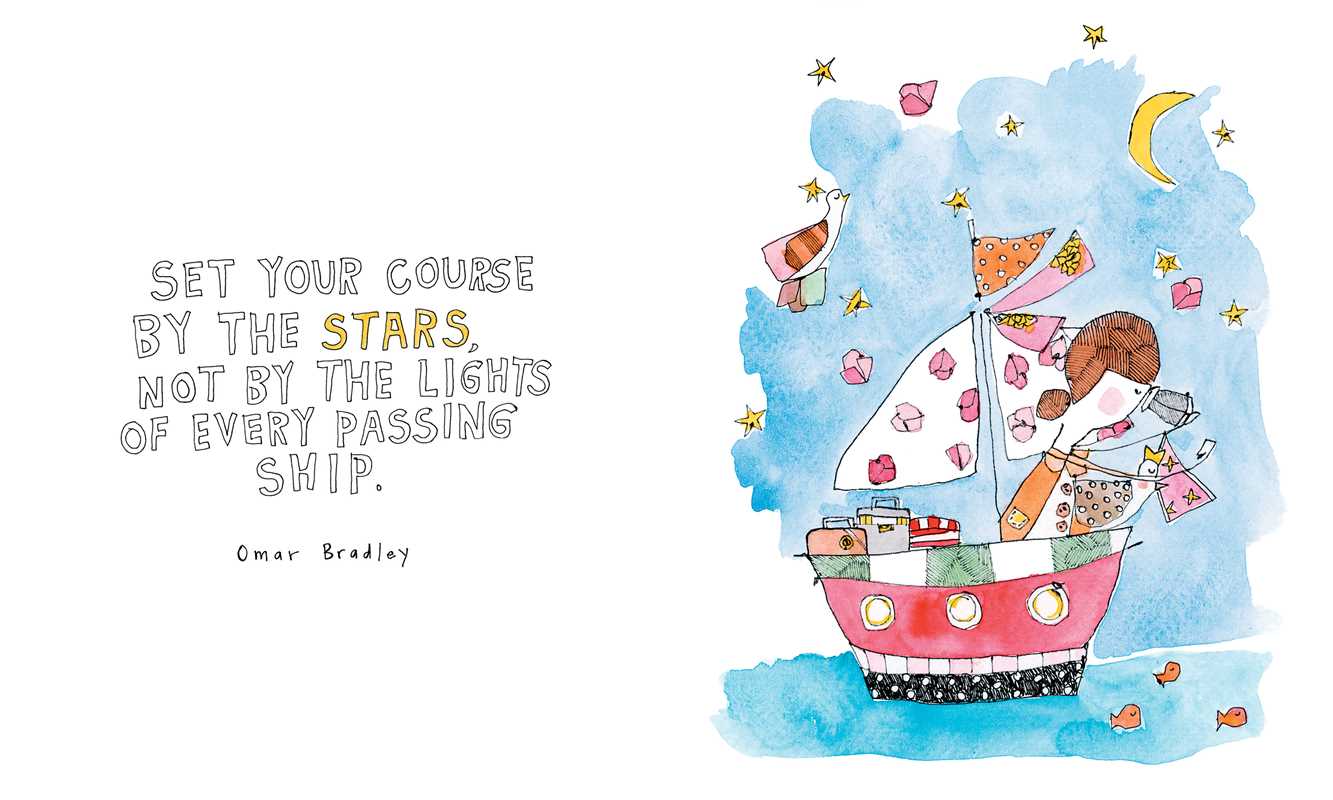 SET YOUR COURSE
BY THE STARS,
NOT BY THE LIGHTS
OF EVERY PASSING
SHIP.
Omar Bradley